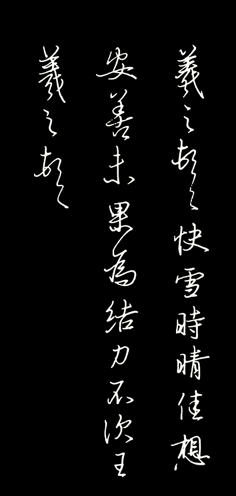 羲之頓々快雪時晴佳想
安善未果為結力不次王
羲之頓々